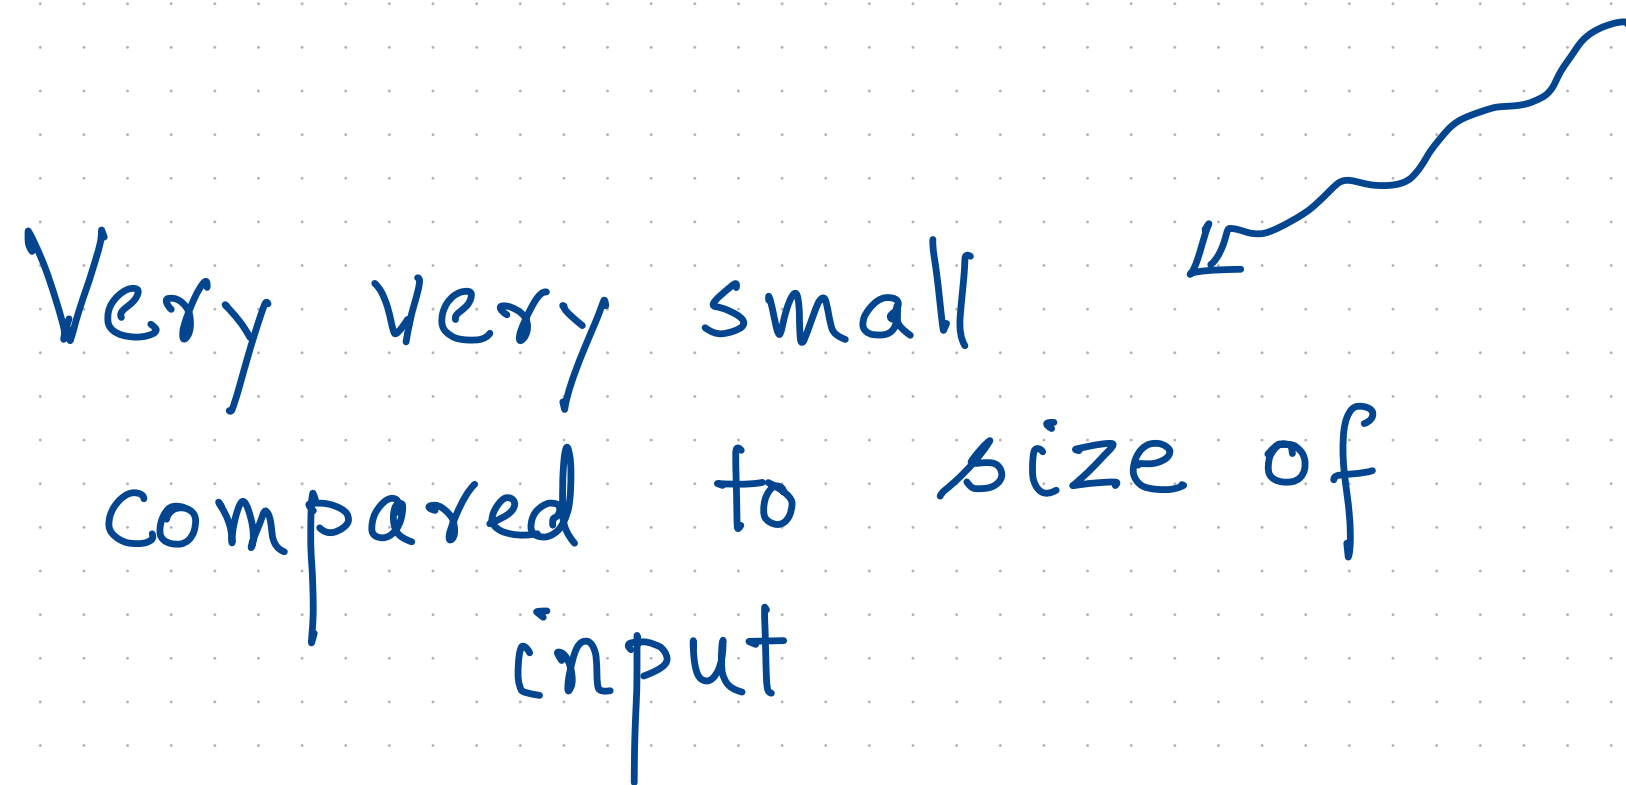 Very very small
compared to size of
input